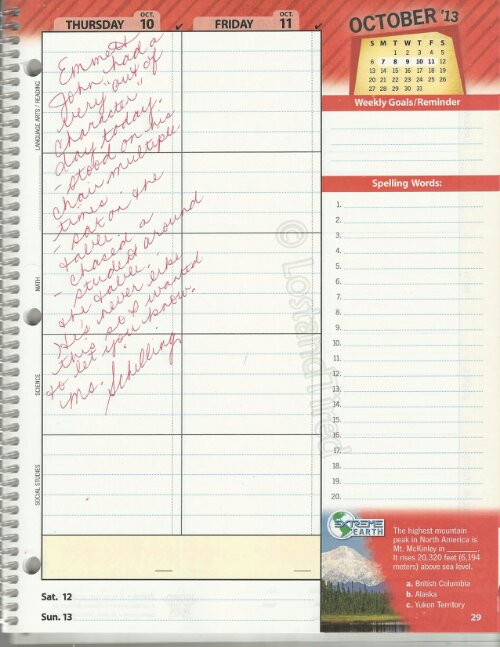 THURSDAY OCT. 10
FRIDAY OCT. 11
Emmett
John had a
very "out of
character"
day today.
- stood on his
chair multiple
times.
- sat on the
table.
- chased a
student around
the table.
He's never like
this so I wanted
to let you know.
Ms. Schelling
LANGUAGE ARTS / READING
MATH
SCIENCE
SOCIAL STUDIES
Sat. 12
Sun. 13
OCTOBER '13
S M T W T F S
1 2 3 4 5
6 7 8 9 10 11 12
13 14 15 16 17 18 19
20 21 22 23 24 25 26
27 28 29 30 31
Weekly Goals/Reminder
Spelling Words:
1.
2.
3.
4.
5.
6.
7.
8.
9.
10.
11.
12.
13.
14.
15.
16.
17.
18.
19.
20.
EXTREME
EARTH
The highest mountain
peak in North America is
Mt. McKinley in ______.
It rises 20,320 feet (6,194
meters) above sea level.
a. British Columbia
b. Alaska
c. Yukon Territory
29